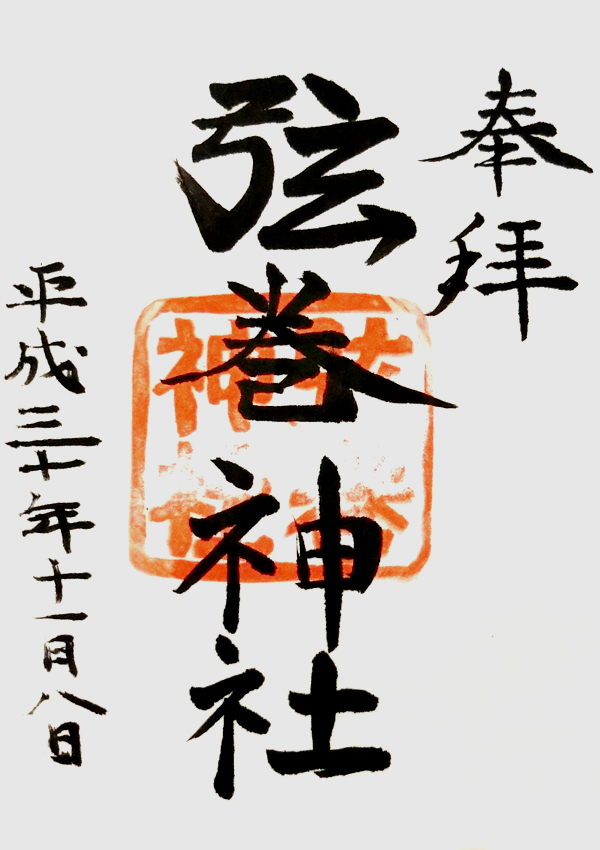 奉拝
弦巻神社
平成三十年十一月八日